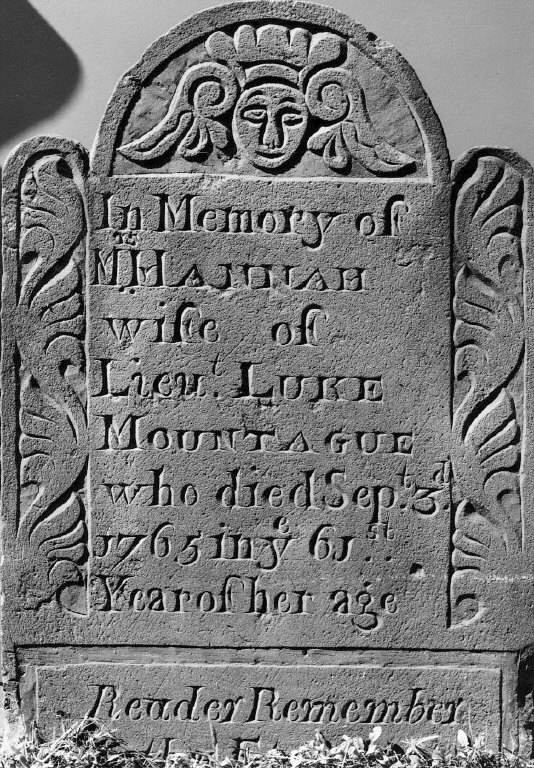 In Memory of
Mrs. HANNAH
wife of
Lieut. LUKE
MOUNTAGUE
who died Sept. 3d.
1765 in ye 61st
Year of her age
Reader Remember